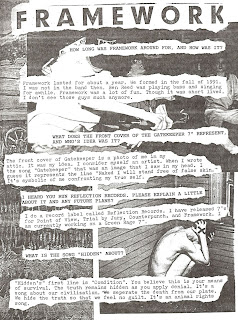 FRAMEWORK
HOW LONG WAS FRAMEWORK AROUND FOR, AND HOW WAS IT?
Framework lasted for about a year. We formed in the fall of 1991.
I was not in the band then. Ben Read was playing bass and singing
for awhile. Framework was a lot of fun. Though it was short lived.
I don't see those guys much anymore.
WHAT DOES THE FRONT COVER OF THE GATEKEEPER 7" REPRESENT,
AND WHO'S IDEA WAS IT?
The front cover of Gatekeeper is a photo of me in my
attic. It was my idea. I consider myself an artist. When I wrote
the song "Gatekeeper" that was the image that I had in my head. I
guess it represents the line "Naked I will stand free of false skin."
It's symbolic of me confronting my true self.
I HEARD YOU RUN REFLECTION RECORDS. PLEASE EXPLAIN A LITTLE
ABOUT IT AND ANY FUTURE PLANS?
I do a record label called Reflection Records. I have released 7"s
for Point of View, Trial by Jury, Counterpunch, and Framework.
am currently working on a Green Rage 7".
WHAT IS THE SONG "HIDDEN" ABOUT?
"Hidden's" first line is "Condition. You believe this is your means
of survival. The truth remains hidden as you apply denial. It's a
song about our civilization. We seperate the death from our plate.
We hide the truth so that we feel no guilt. It's an animal rights
song.